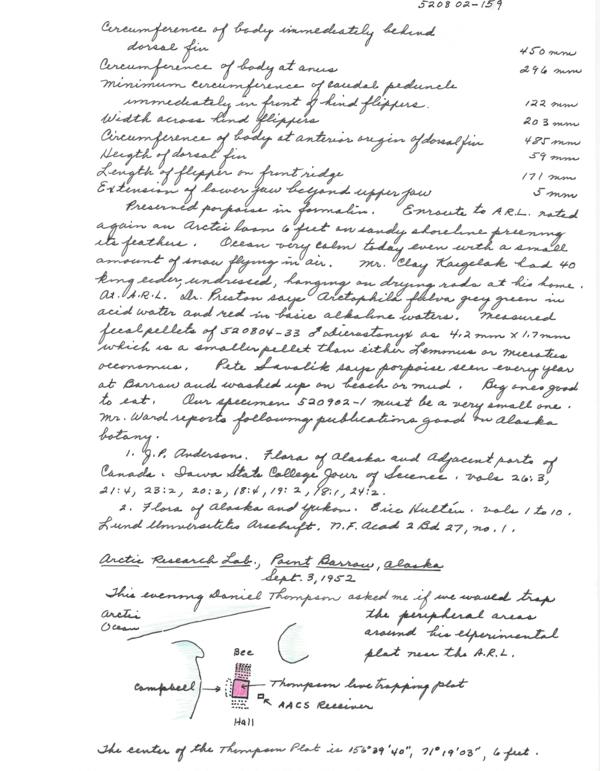 520802-159
Circumference of body immediately behind
dorsal fin 450 mm
Circumference of body at anus 296 mm
Minimum circumference of caudal peduncle
immediately in front of hind flippers. 122 mm
Width across hind flippers 203 mm
Circumference of body at anterior origin of dorsal fin 485 mm
Heigth of dorsal fin 59 mm
Length of flipper on front ridge 171 mm
Extension of lower jaw beyond upper jaw 5 mm
Preserved porpoise in formalin. Enroute to A.R.L. noted
again an Arctic loon 6 feet on sandy shoreline preening
its feathers. Ocean very calm today even with a small
amount of snow flying in air. Mr. Clay Kaigelak had 40
king eider, undressed, hanging on drying rods at his home.
At A.R.L. Dr. Preston says Arctophila fulva grey green in
acid water and red in basic alkaline waters. Measured
fecal pellets of 520804-33 ♂ Dicrostonyx as 4.2 mm x 1.7 mm
which is a smaller pellet than either Lemmus or Microtus
oeconomus. Pete Savolik says porpoise seen every year
at Barrow and washed up on beach or mud. Big ones good
to eat. Our specimen 520902-1 must be a very small one.
Mr. Ward reports following publications good on Alaska
botany.
1. J.P. Anderson. Flora of Alaska and Adjacent parts of
Canada. Iowa State College Jour of Science. vols 26:3,
21:4, 23:2, 20:2, 18:4, 19:2, 18:1, 24:2.
2. Flora of Alaska and Yukon. Eric Hultén. vols 1 to 10.
Lund Universititis Arsskrift. N.F. Acad 2 Bd 27, no. 1.
Arctic Research Lab., Point Barrow, Alaska
Sept. 3, 1952
This evening Daniel Thompson asked me if we would trap
the peripheral areas
around his experimental
plot near the A.R.L.
Arctic
Ocean
Bee
Campbell
Thompson live trapping plot
AACS Receiver
Hall
The center of the Thompson Plot is 156°39'40", 71°19'03", 6 feet.